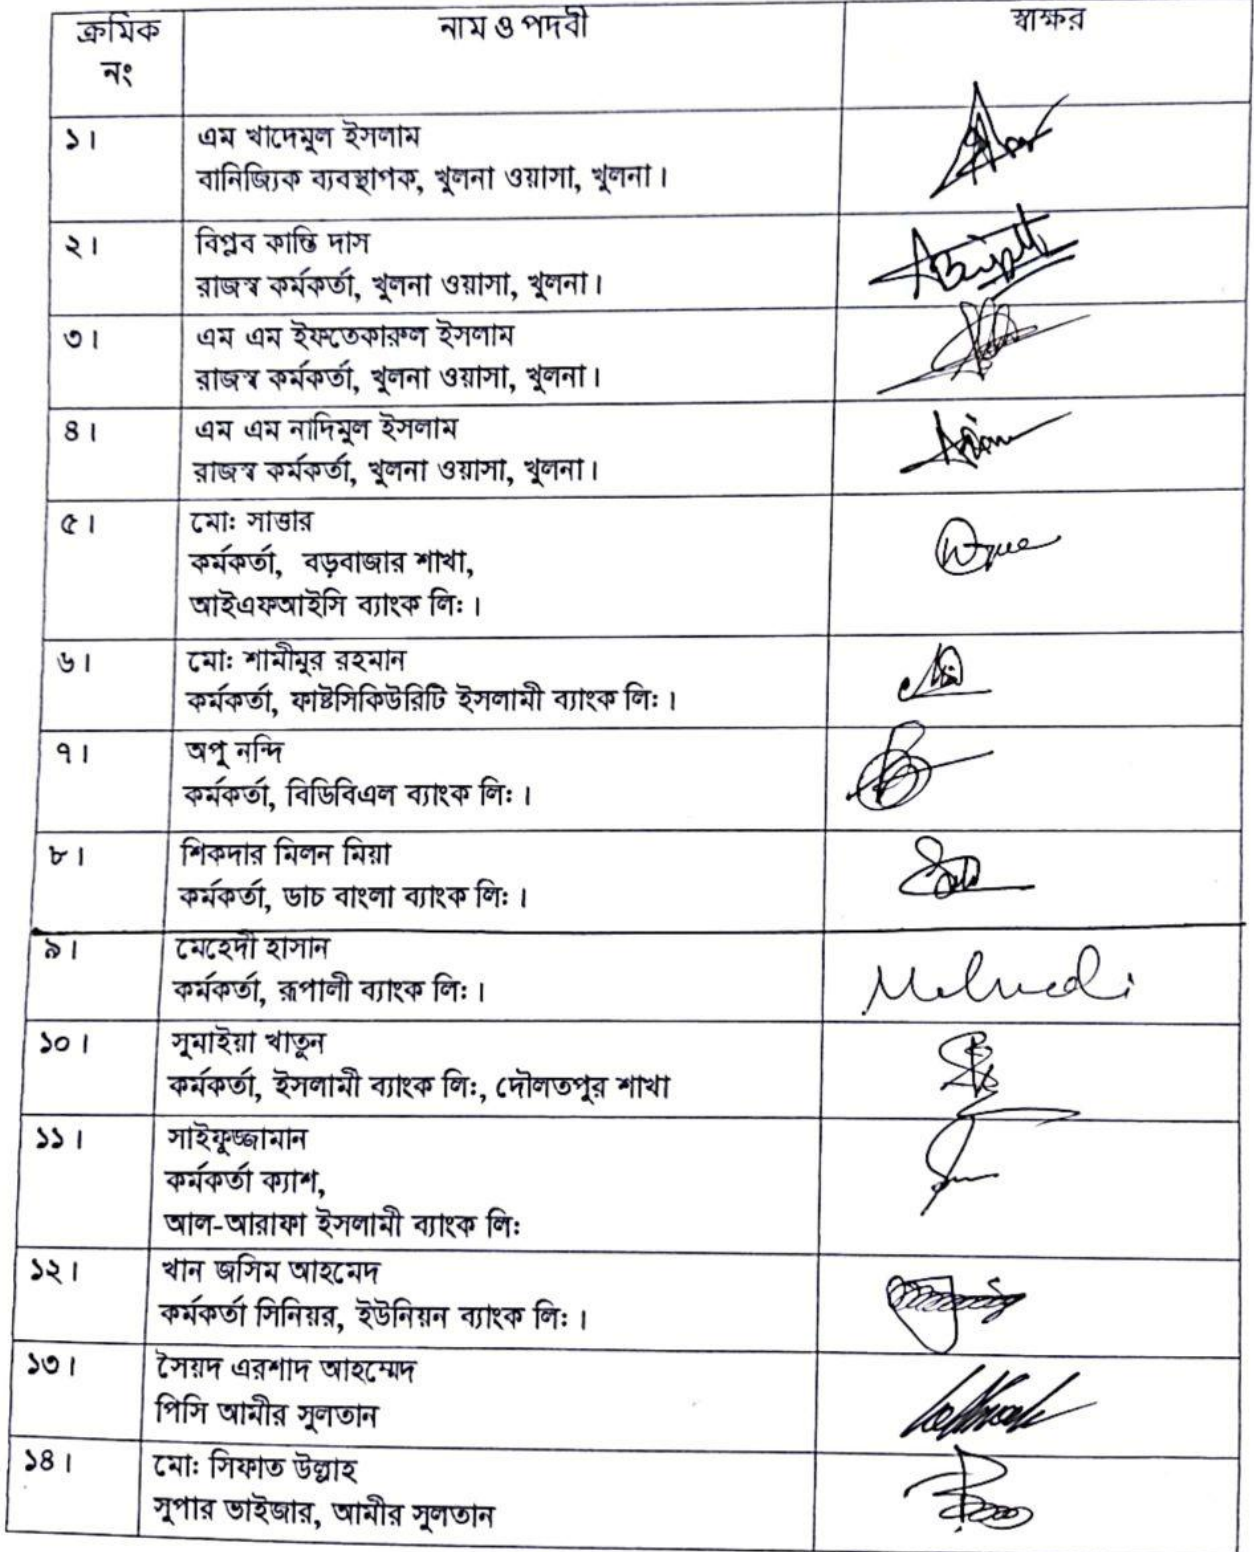 ক্রমিক নাম ও পদবী স্বাক্ষর
নং
১। এম খাদেমুল ইসলাম
বানিজ্যিক ব্যবস্থাপক, খুলনা ওয়াসা, খুলনা।
২। বিপ্লব কান্তি দাস
রাজস্ব কর্মকর্তা, খুলনা ওয়াসা, খুলনা।
৩। এম এম ইফতেকারুল ইসলাম
রাজস্ব কর্মকর্তা, খুলনা ওয়াসা, খুলনা।
৪। এম এম নাদিমুল ইসলাম
রাজস্ব কর্মকর্তা, খুলনা ওয়াসা, খুলনা।
৫। মোঃ সাত্তার
কর্মকর্তা, বড়বাজার শাখা,
আইএফআইসি ব্যাংক লিঃ।
৬। মোঃ শামীমুর রহমান
কর্মকর্তা, ফাষ্টসিকিউরিটি ইসলামী ব্যাংক লিঃ।
৭। অপু নন্দি
কর্মকর্তা, বিডিবিএল ব্যাংক লিঃ।
৮। শিকদার মিলন মিয়া
কর্মকর্তা, ডাচ বাংলা ব্যাংক লিঃ।
৯। মেহেদী হাসান
কর্মকর্তা, রূপালী ব্যাংক লিঃ। Mehedi
১০। সুমাইয়া খাতুন
কর্মকর্তা, ইসলামী ব্যাংক লিঃ, দৌলতপুর শাখা
১১। সাইফুজ্জামান
কর্মকর্তা ক্যাশ,
আল-আরাফা ইসলামী ব্যাংক লিঃ
১২। খান জসিম আহমেদ
কর্মকর্তা সিনিয়র, ইউনিয়ন ব্যাংক লিঃ।
১৩। সৈয়দ এরশাদ আহম্মেদ
পিসি আমীর সুলতান
১৪। মোঃ সিফাত উল্লাহ
সুপার ভাইজার, আমীর সুলতান